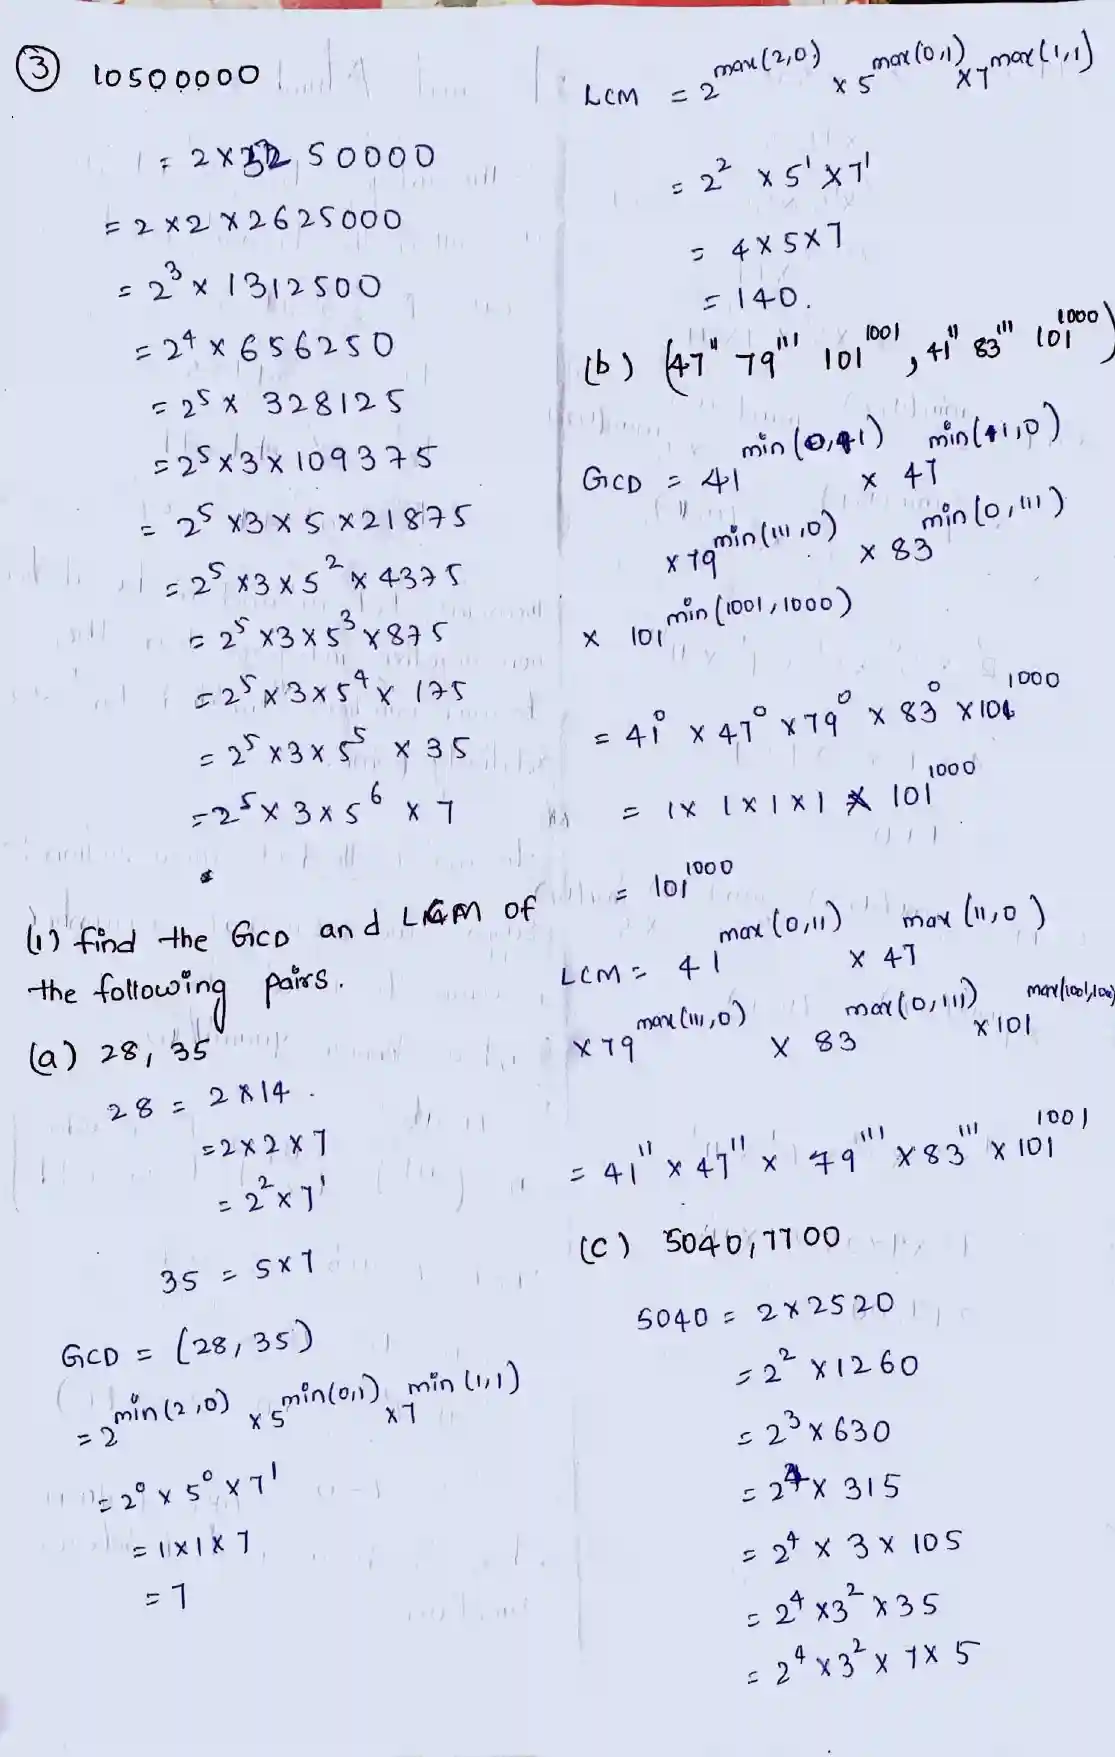 ③ 10500000
= 2×5250000
= 2×2×2625000
= 2³ × 1312500
= 2⁴ × 656250
= 2⁵ × 328125
= 2⁵×3×109375
= 2⁵ ×3×5×21875
= 2⁵ ×3×5² × 4375
= 2⁵ ×3×5³ ×875
= 2⁵ ×3×5⁴ × 175
= 2⁵ ×3×5⁵ × 35
= 2⁵ × 3×5⁶ × 7
(1) find the GCD and LCM of
the following pairs.
(a) 28, 35
28 = 2×14.
= 2×2×7
= 2²×7¹
35 = 5×7
GCD = (28, 35)
= 2^min(2,0) × 5^min(0,1) × 7^min(1,1)
= 2⁰ × 5⁰ × 7¹
= 1×1×7
= 7
LCM = 2^max(2,0) × 5^max(0,1) × 7^max(1,1)
= 2² × 5¹ × 7¹
= 4×5×7
= 140.
(b) (47¹¹ 79¹¹¹ 101¹⁰⁰¹, 41¹¹ 83¹¹¹ 101¹⁰⁰⁰)
GCD = 41^min(0,11) × 47^min(11,0)
× 79^min(111,0) × 83^min(0,111)
× 101^min(1001,1000)
= 41⁰ × 47⁰ × 79⁰ × 83⁰ × 101¹⁰⁰⁰
= 1× 1×1×1 × 101¹⁰⁰⁰
= 101¹⁰⁰⁰
LCM = 41^max(0,11) × 47^max(11,0)
× 79^max(111,0) × 83^max(0,111) × 101
= 41¹¹ × 47¹¹ × 79¹¹¹ × 83¹¹¹ × 101¹⁰⁰¹
(C) 5040, 7700
5040 = 2×2520
= 2² × 1260
= 2³ × 630
= 2⁴ × 315
= 2⁴ × 3 × 105
= 2⁴ ×3² ×35
= 2⁴ ×3² × 7× 5